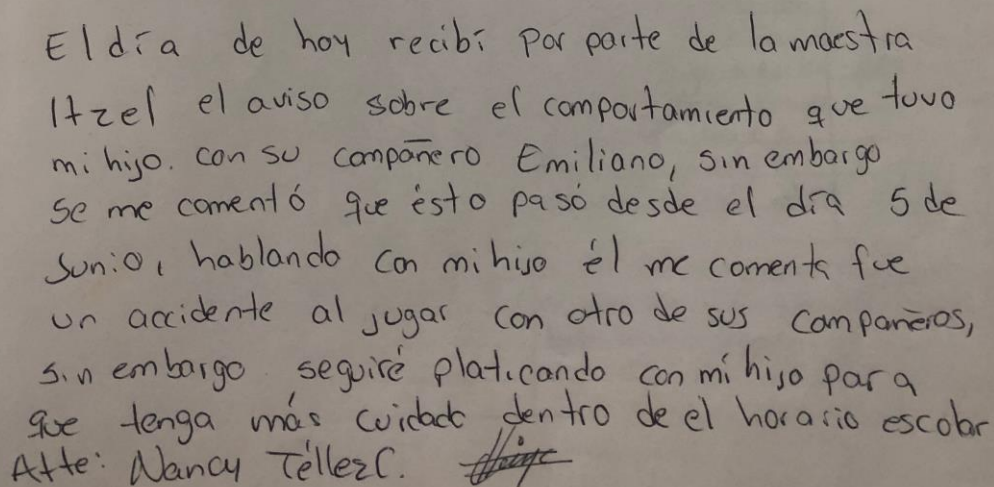 El día de hoy recibí por parte de la maestra
Itzel el aviso sobre el comportamiento que tuvo
mi hijo. con su compañero Emiliano, sin embargo
se me comentó que ésto pasó desde el día 5 de
Junio, hablando con mi hijo él me comenta fue
un accidente al jugar con otro de sus compañeros,
sin embargo seguiré platicando con mi hijo para
que tenga más cuidado dentro de el horario escolar
Atte: Nancy Téllez C.